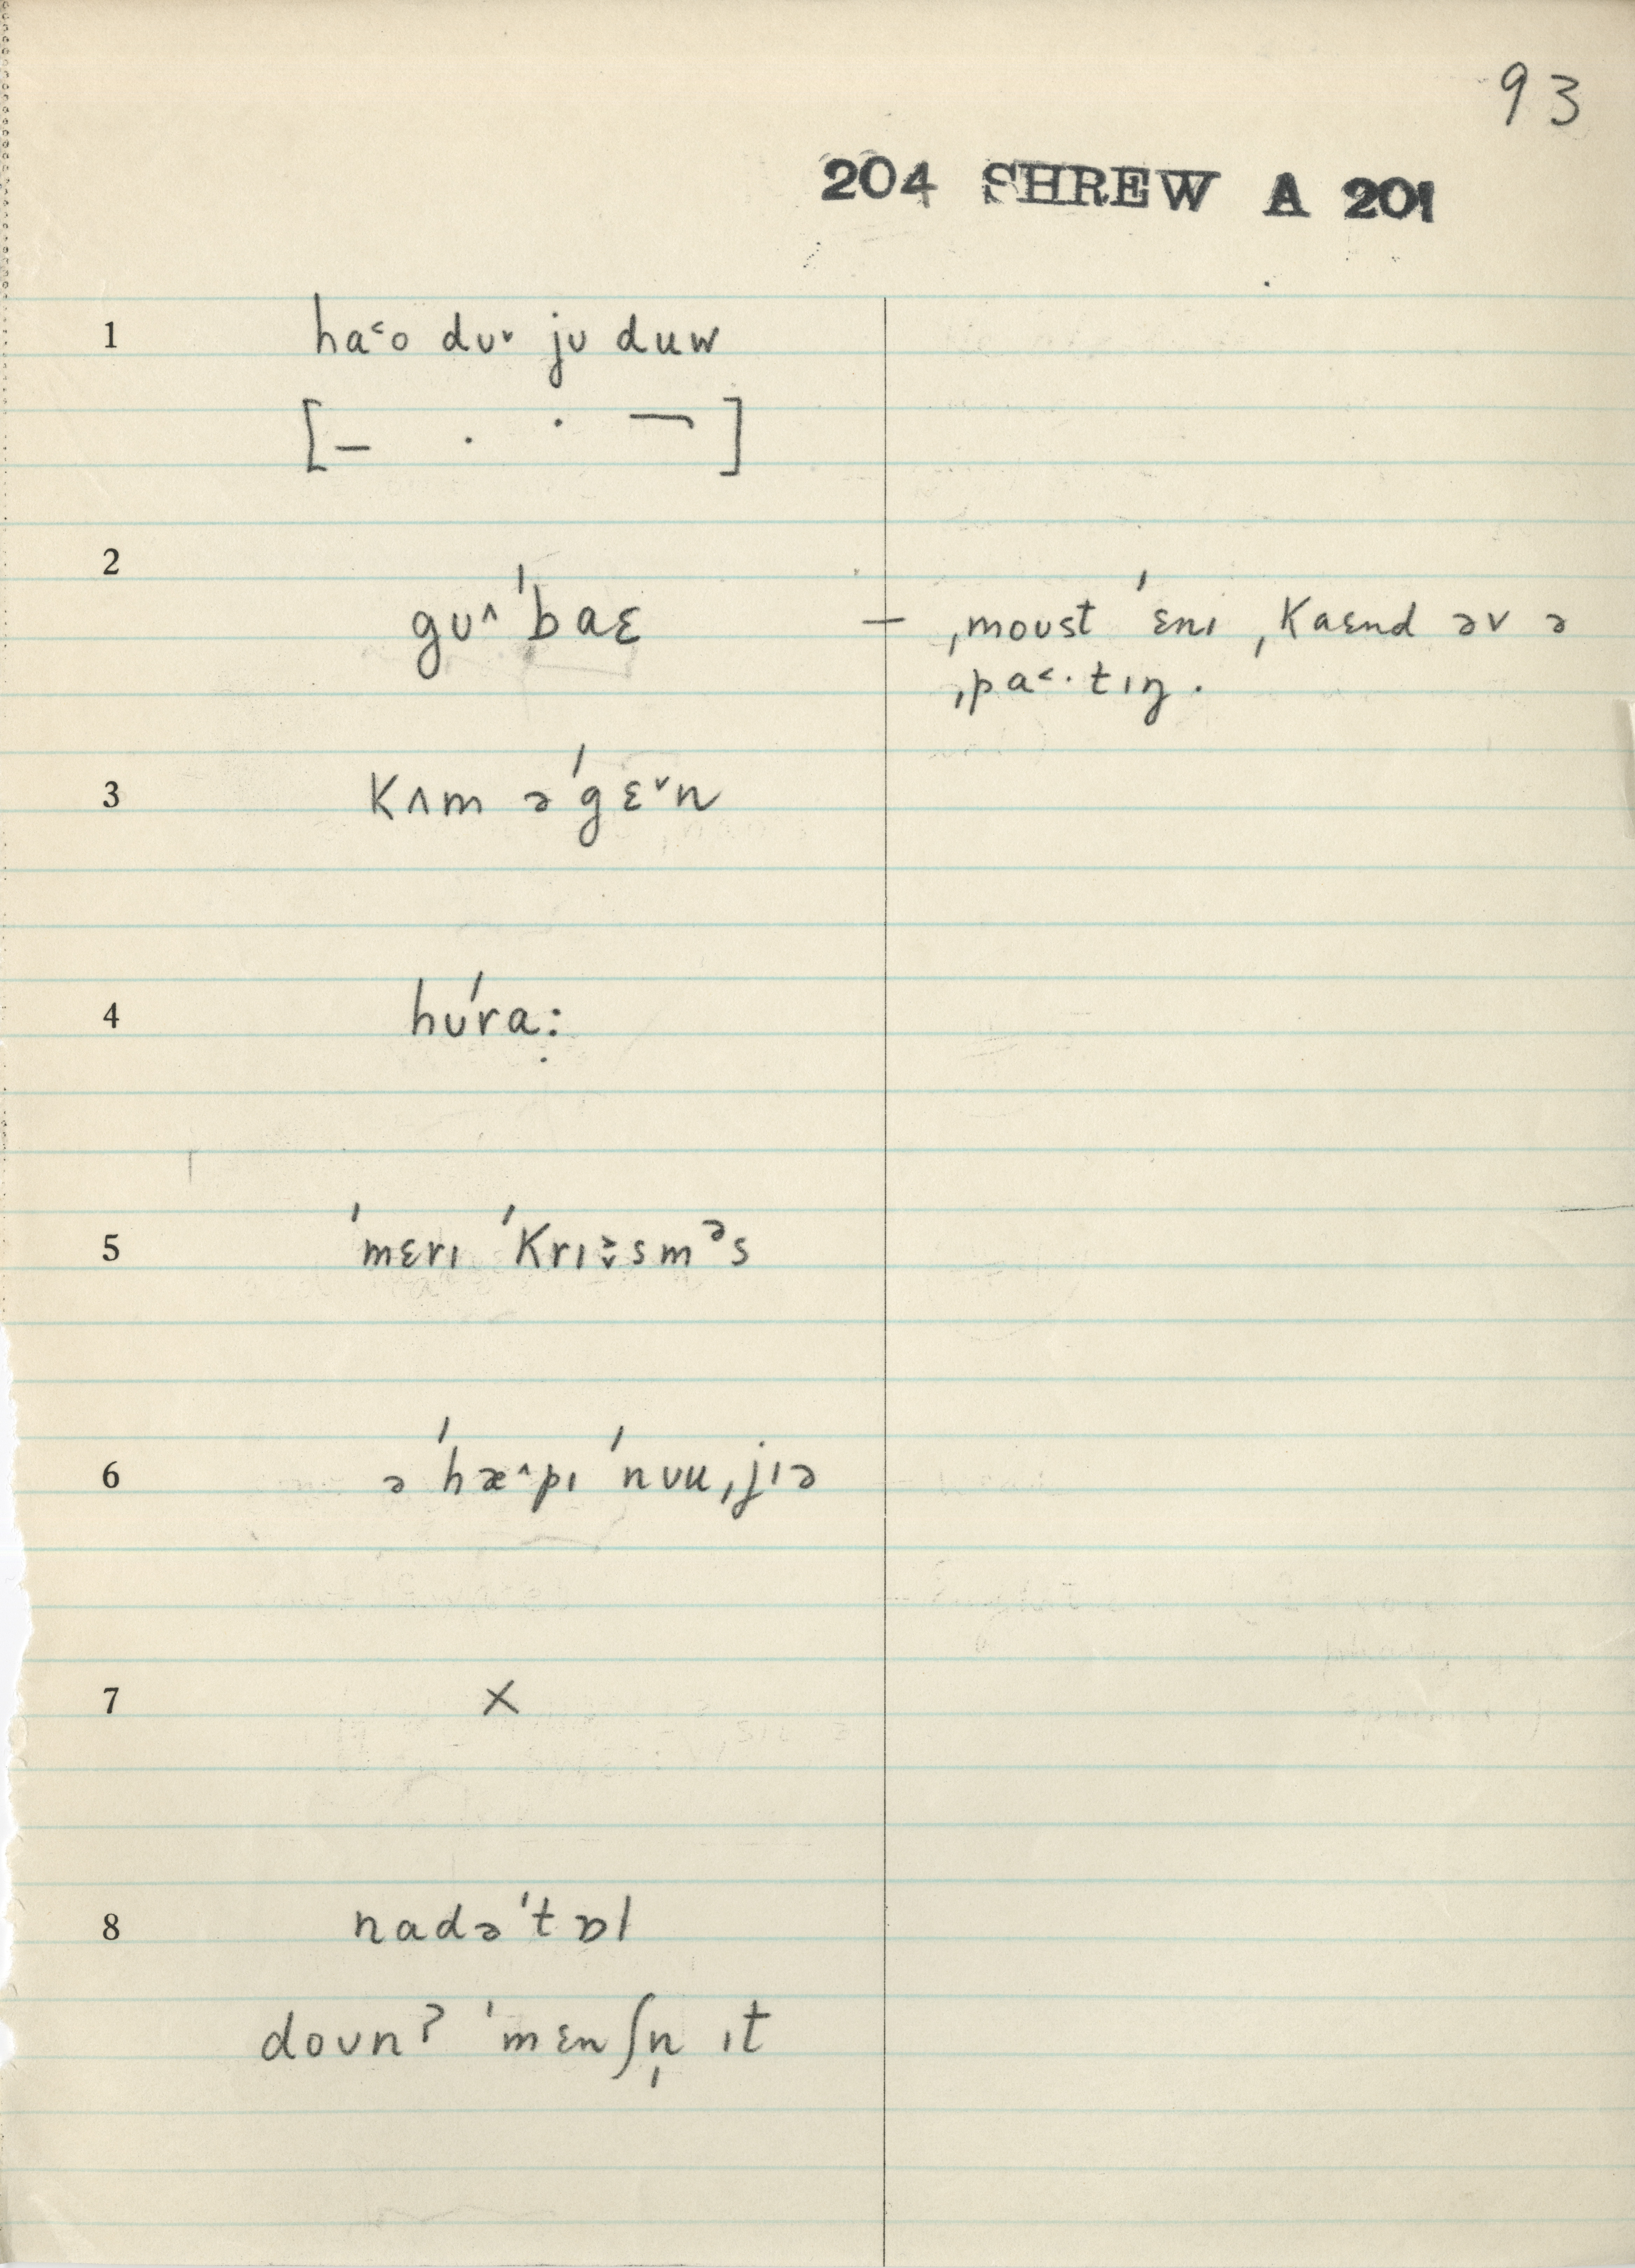 93
204 SHREW A 201
1 ha˂o dʊ˅ jʊ duw
[– . ˙ ¬]
2 gʊ˄ˈbaɛ – ˌmoʊst ˈɛnɪ ˌkaɛnd əv ə
ˌpa˂·tɪŋ.
3 kʌm əˈgɛ˅n
4 hʊˈra:
5 ˈmɛrɪ ˈkrɪsməs
6 ə ˈhæ˄pɪ ˈnʊuˌjɪə
7 ×
8 nadəˈtɒl
doʊnʔ ˈmɛnʃn̩ ɪt